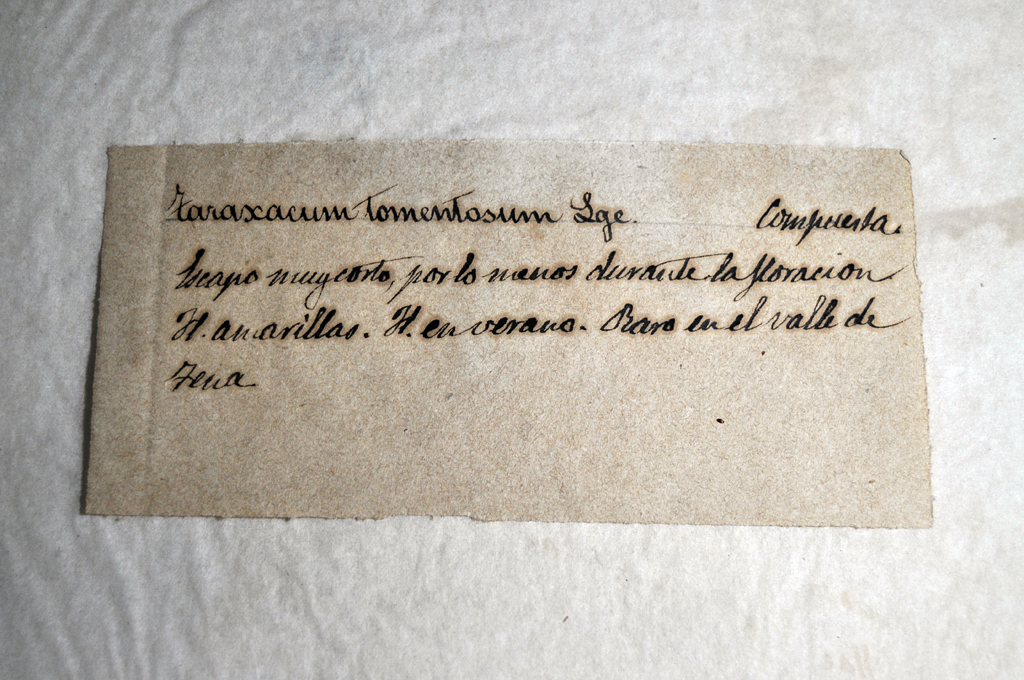 Taraxacum tomentosum Lge. Compuesta.
Escapo muy corto, por lo menos durante la floracion
Fl. amarillas. Fl. en verano. Raro en el valle de
Tena